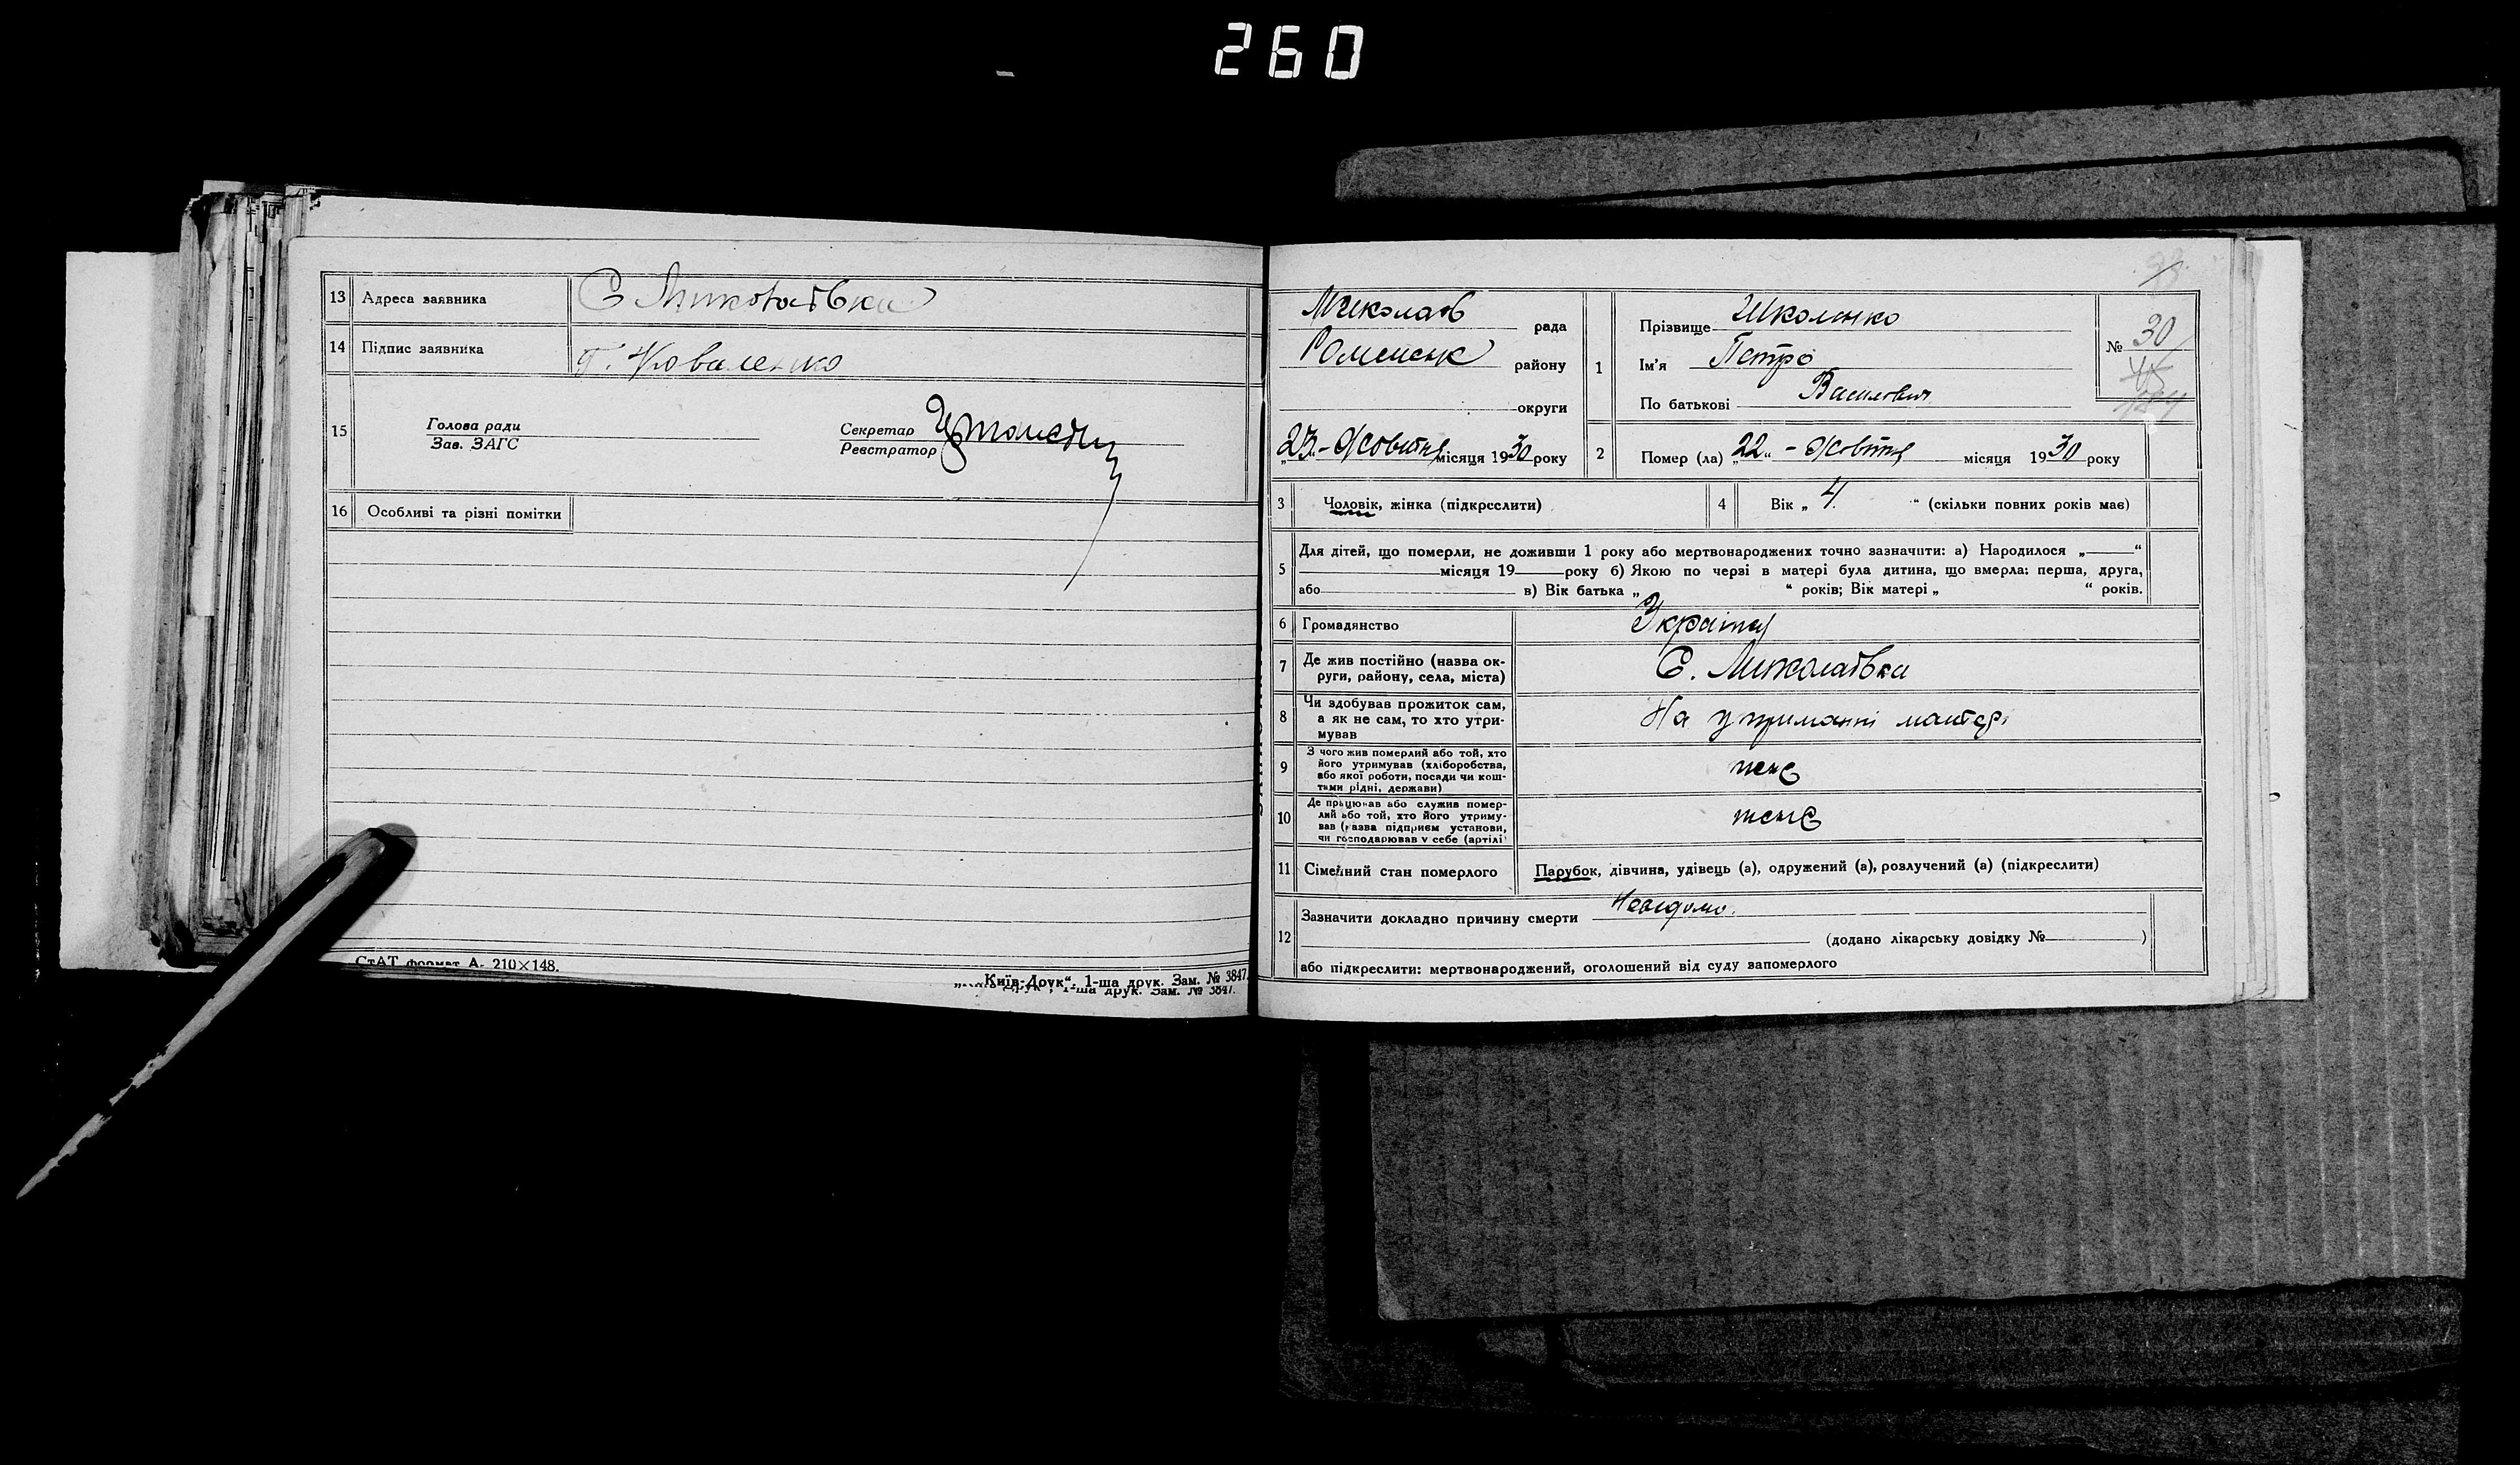 260
13 Адреса заявника С Миколаївка
14 Підпис заявника Г. Коваленко
15 Голова ради
Зав. ЗАГС
Секретар
Реєстратор
16 Особливі та різні помітки
СтАТ формат А- 210×148.
„Київ-Друк“, 1-ша друк. Зам. № 3847.
1-ша друк. Зам. № 3847.
Миколаїв рада
Роменськ району
округи
„23“ - Жовтня місяця 1930 року
1 Прізвище Школенко
Ім'я Петро
По батькові Василович
№ 30
2 Помер (ла) „22“ - Жовтня місяця 1930 року
3 Чоловік, жінка (підкреслити)
4 Вік „ 4 “ (скільки повних років має)
5 Для дітей, що померли, не доживши 1 року або мертвонароджених точно зазначити: а) Народилося „ “
місяця 19 року б) Якою по черзі в матері була дитина, що вмерла: перша, друга,
або в) Вік батька „ “ років; Вік матері „ “ років.
6 Громадянство Україн
7 Де жив постійно (назва ок-
руги, району, села, міста) С. Миколаївка
8 Чи здобував прожиток сам,
а як не сам, то хто утри-
мував На утриманні матері
9 З чого жив померлий або той, хто
його утримував (хліборобства,
або якої роботи, посади чи кош-
тами рідні, держави) теж
10 Де працював або служив помер-
лий або той, хто його утриму-
вав (назва підприєм установи,
чи господарював у себе (артілі) теж
11 Сімейний стан померлого Парубок, дівчина, удівець (а), одружений (а), розлучений (а) (підкреслити)
12 Зазначити докладно причину смерти Невідомо.
(додано лікарську довідку № )
або підкреслити: мертвонароджений, оголошений від суду запомерлого